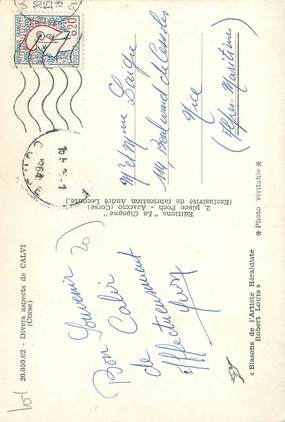 20.050.02 - Divers aspects de CALVI
(Corse)
Bon Souvenir
de Calvi
Affectueusement
20
Editions "La Cigogne"
2, place Foch - Ajaccio (Corse)
(Exclusivité de fabrication André Leconte.)
« Blasons de l'Artiste Héraldiste
Robert Louis »
★ Photo véritable ★
0,20
M et Mme Laigle
114 Boulevard de Cessole
Nice
(Alpes Maritimes)